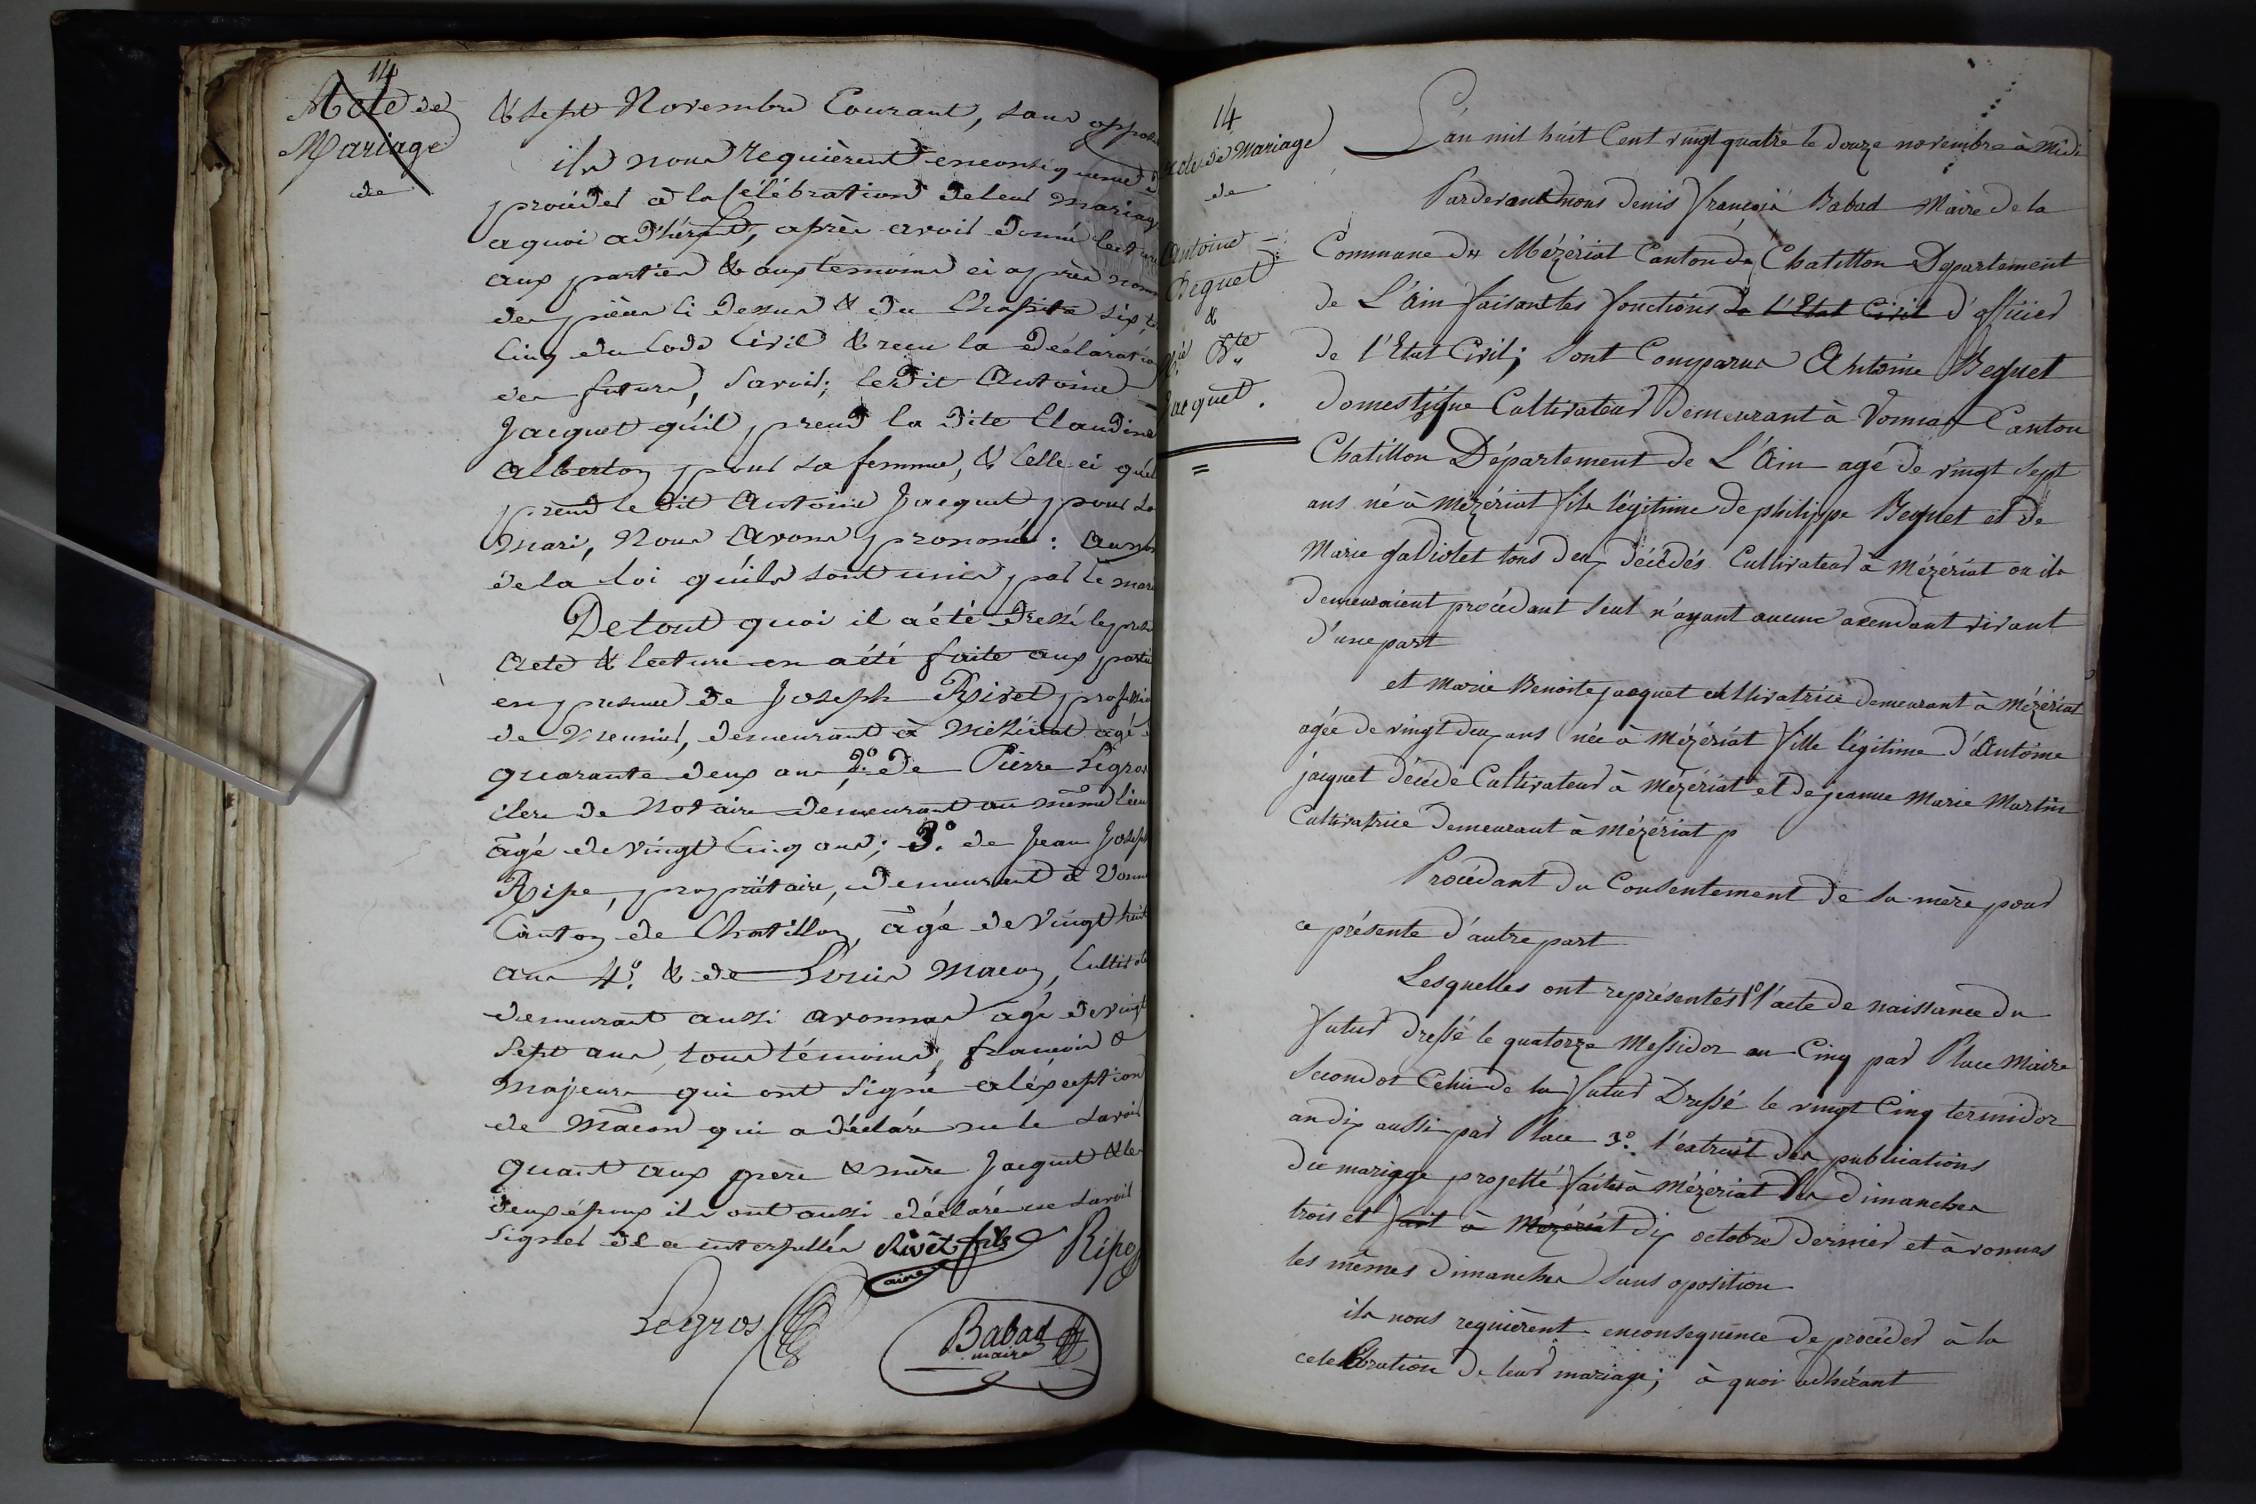 14
Acte de
Mariage
de
& sept Novembre Courant, sans oppos
ils nous requièrent en conséquence de
procéder à la Célébration de leur Mariage
a quoi adhérant, après avoir donné lecture
aux parties & aux témoins ci après nom
des pièces ci dessus & du Chapitre six, t
Cinq du Code Civil & reçu la Déclaratio
des futurs, savoir; le dit Antoine
Jacquet qu'il prend la dite Claudine
Alberton pour sa femme, & Celle ci quel
prend le dit Antoine Jacquet pour so
Mari, Nous avons prononcé: Au nom
de la Loi qu'ils sont unis par le mar
De tout quoi il a été dressé le prese
Acte & lecture en a été faite aux partie
en presence de Joseph Rivet profession
de Meunier, demeurant à Mézériat agé d
quarante deux ans 2.º de Pierre Legros
clerc de Notaire demeurant au même lieu
âgé de vingt Cinq ans; 3.º de Jean Joseph
Ripe, propriétaire, demeurant à Vonn
Canton de Chatillon, âgé de Vingt huit
ans 4.º & de Louis Macon, Cultivate
demeurant aussi a vonnas agé de vingt
Sept ans, tous témoins, françois &
majeurs qui ont signé à léxception
de Macon qui a déclaré ne le savoir
quant aux père & mère Jacquet & les
deux époux ils ont aussi déclaré ne savoir
signer de ce interpellés Rivet fils Ripe
ainé
Legros
Babad
maire
14
acte de Mariage
de
Antoine
Bequet
&
Bte
Jacquet.
L'an mil huit Cent vingt quatre le douze novembre à Midi
Pardevant nous denis françois Babad Maire de la
Commune de Mézériat Canton de Chatillon Département
de L'Ain faisant les fonctions de l'Etat Civil d'officier
de l'Etat Civil; sont Comparus Antoine Bequet
domestique Cultivateur demeurant à Vonnas Canton
Chatillon Département de L'Ain agé de vingt sept
ans né à Mézériat fils légitime de philippe Bequet et de
Marie gadiolet tous deux décédés Cultivateur à Mézériat ou ils
demeuraient procédant seul n'ayant aucune acendant vivant
d'une part
et Marie Benoite jacquet cultivatrice demeurant à Mézériat
agée de vingt deux ans née à Mézériat fille légitime d'Antoine
jacquet décédé Cultivateur à Mézériat et de jeanne Marie Martin
Cultivatrice demeurant à Mézériat p
Procédant du Consentement de sa mère pour
ce présente d'autre part
Lesquelles ont représentés 1º l'acte de naissance du
futur dressé le quatorze Messidor an Cinq par Place Maire
Second et Celui de la futur Dressé le vingt Cinq termidor
an dix aussi par Place 3.º l'extrait des publications
du mariage projetté faites à Mézériat les dimanches
trois et fait à Mézériat dix octobre dernier et à vonnas
les mêmes dimanches sans oposition
ils nous requièrent en consequence de procéder à la
celebration de leur mariage; à quoi adhérant